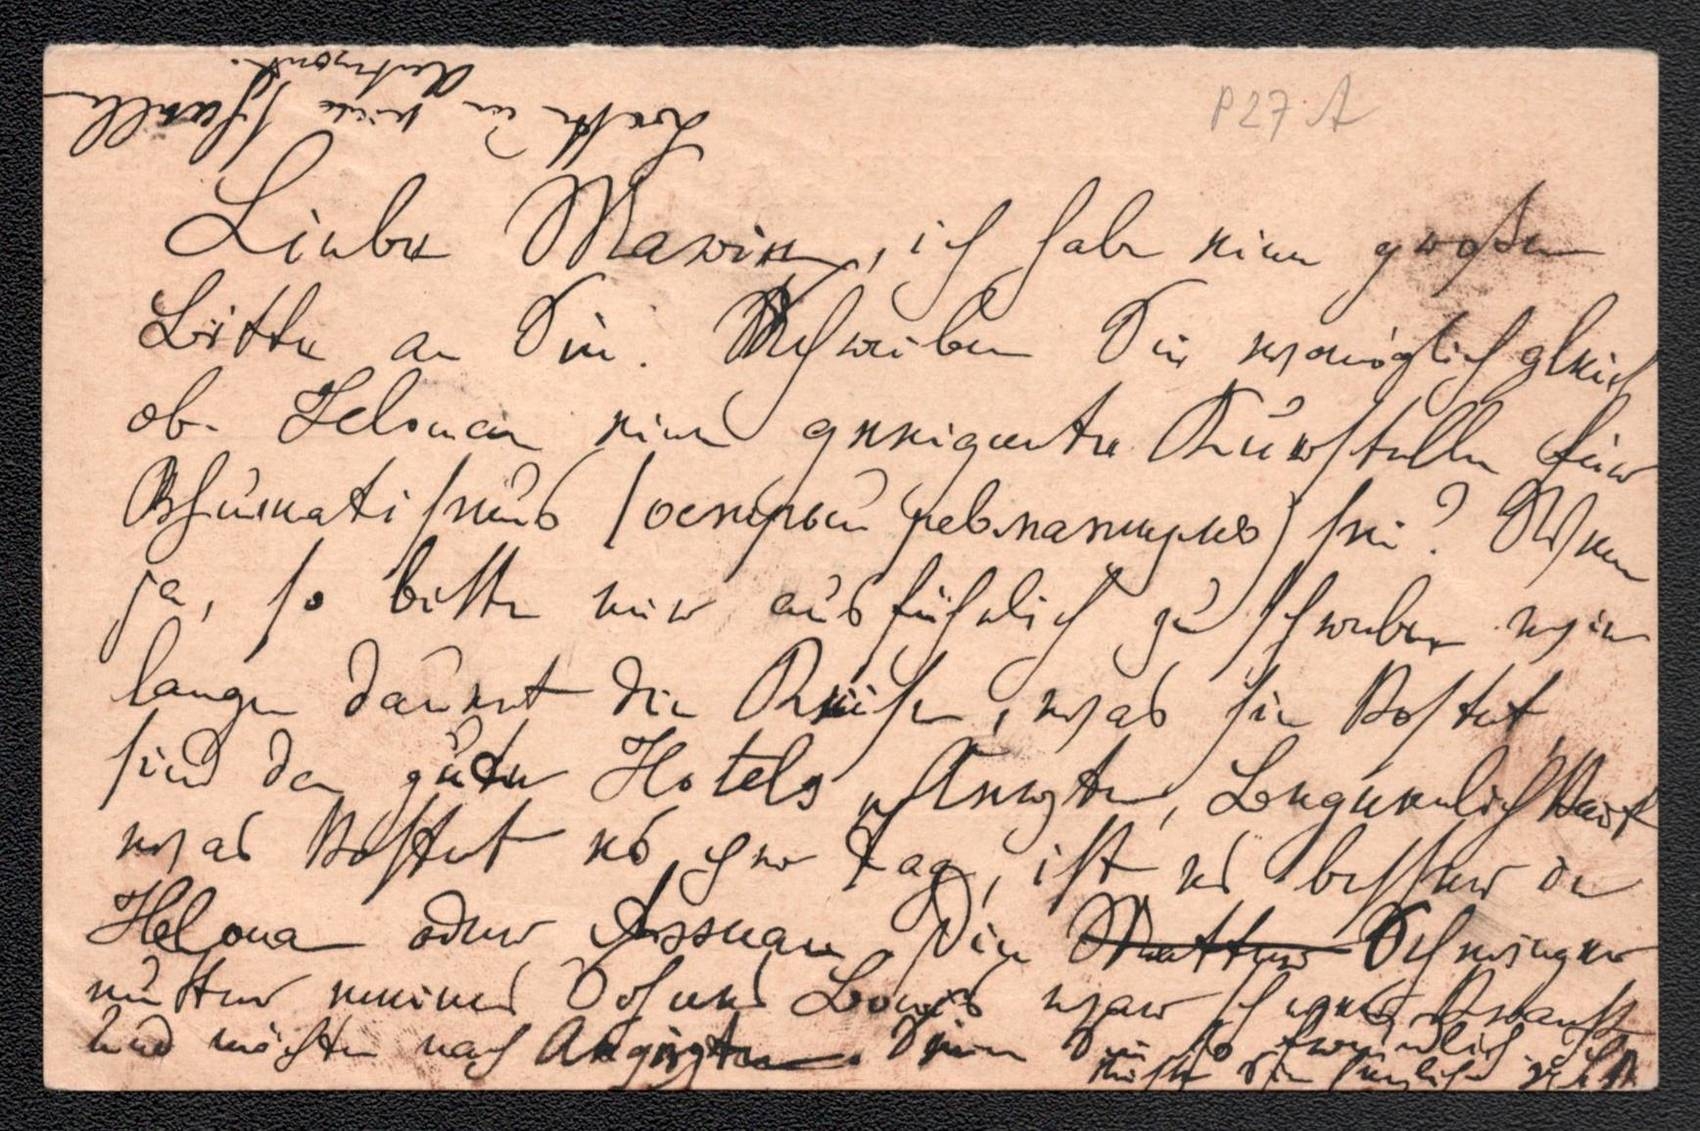 P 27 A
Liebe Marin, ich habe eine große
Bitte an Sie. Schreiben Sie womöglich gleich
ob Helouan eine geeignete Kurstelle für
Rheumatismus (острый ревматизмъ) sei? Wenn
ja, so bitte mir ausführlich zu schreiben wie
lange dauert die Reise, was sie kostet,
sind da gute Hotels, Aerzte, Bequemlichkeit
was kostet es per Tag, ist es besser in
Heloua oder Assuan. Die Mutter Schwieger
mutter meines Sohnes Boris war schwer krank
und möchte nach Aegypten. Seien Sie so freundlich